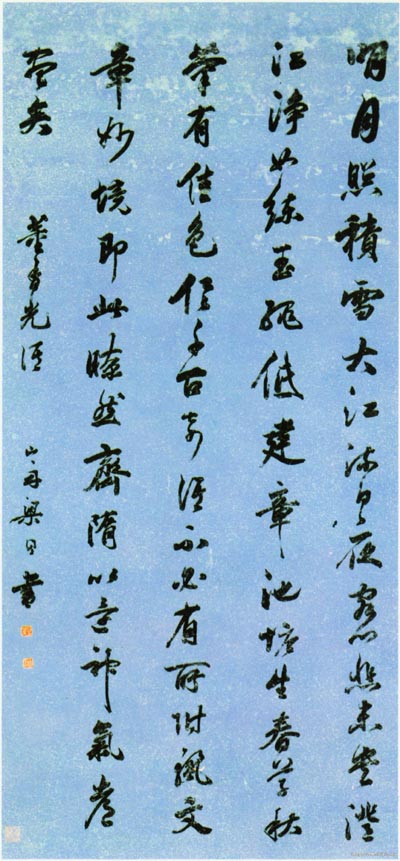 明月照積雪大江流日夜客心悲未央澄
江淨如練玉繩低建章池塘生春草秋
菊有佳色俱千古奇語不必有所附麗文
章妙境即此瞭然齊隋以還神氣都
盡矣 董香光語 山舟梁同書